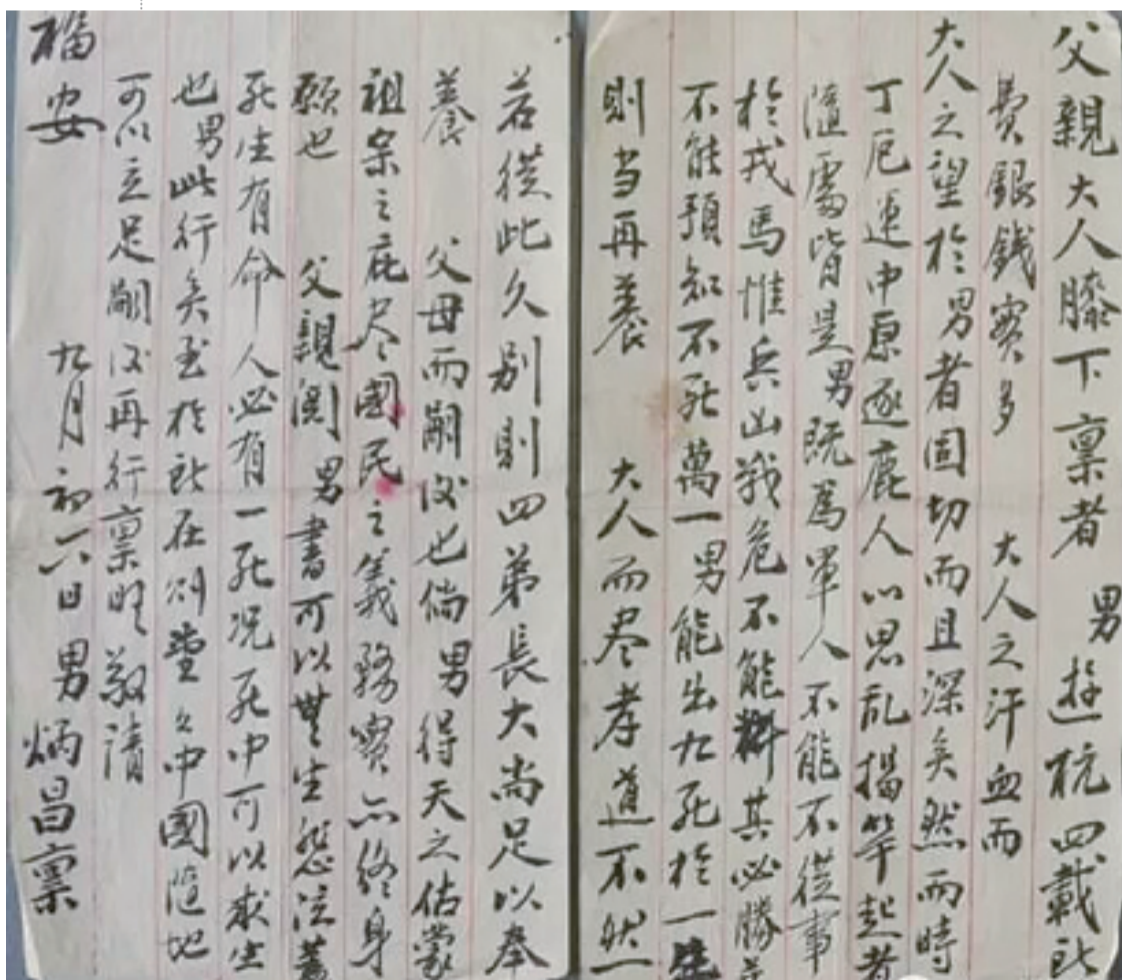 父親大人膝下稟者　男遊杭四載所
費銀錢實多　大人之汗血而
大人之望於男者固切而且深矣然而時
丁厄運中原逐鹿人心思亂揭竿起者
隨處皆是男既為軍人不能不從事
於戎馬惟兵凶戰危不能料其必勝亦
不能預知不死萬一男能出九死於一生
則当再養　大人而尽孝道不然一
若從此久別則四弟長大尚足以奉
養　父母而嗣後也倘男得天之佑蒙
祖宗之庇尽國民之義務實亦終身
願也　父親閱男書可以無生愁注蓋
死生有命人必有一死況死中可以求生
也男此行矣至於所在則堂々中國隨地
可以立足嗣後再行稟明敬請
福安
九月初六日男炳昌稟